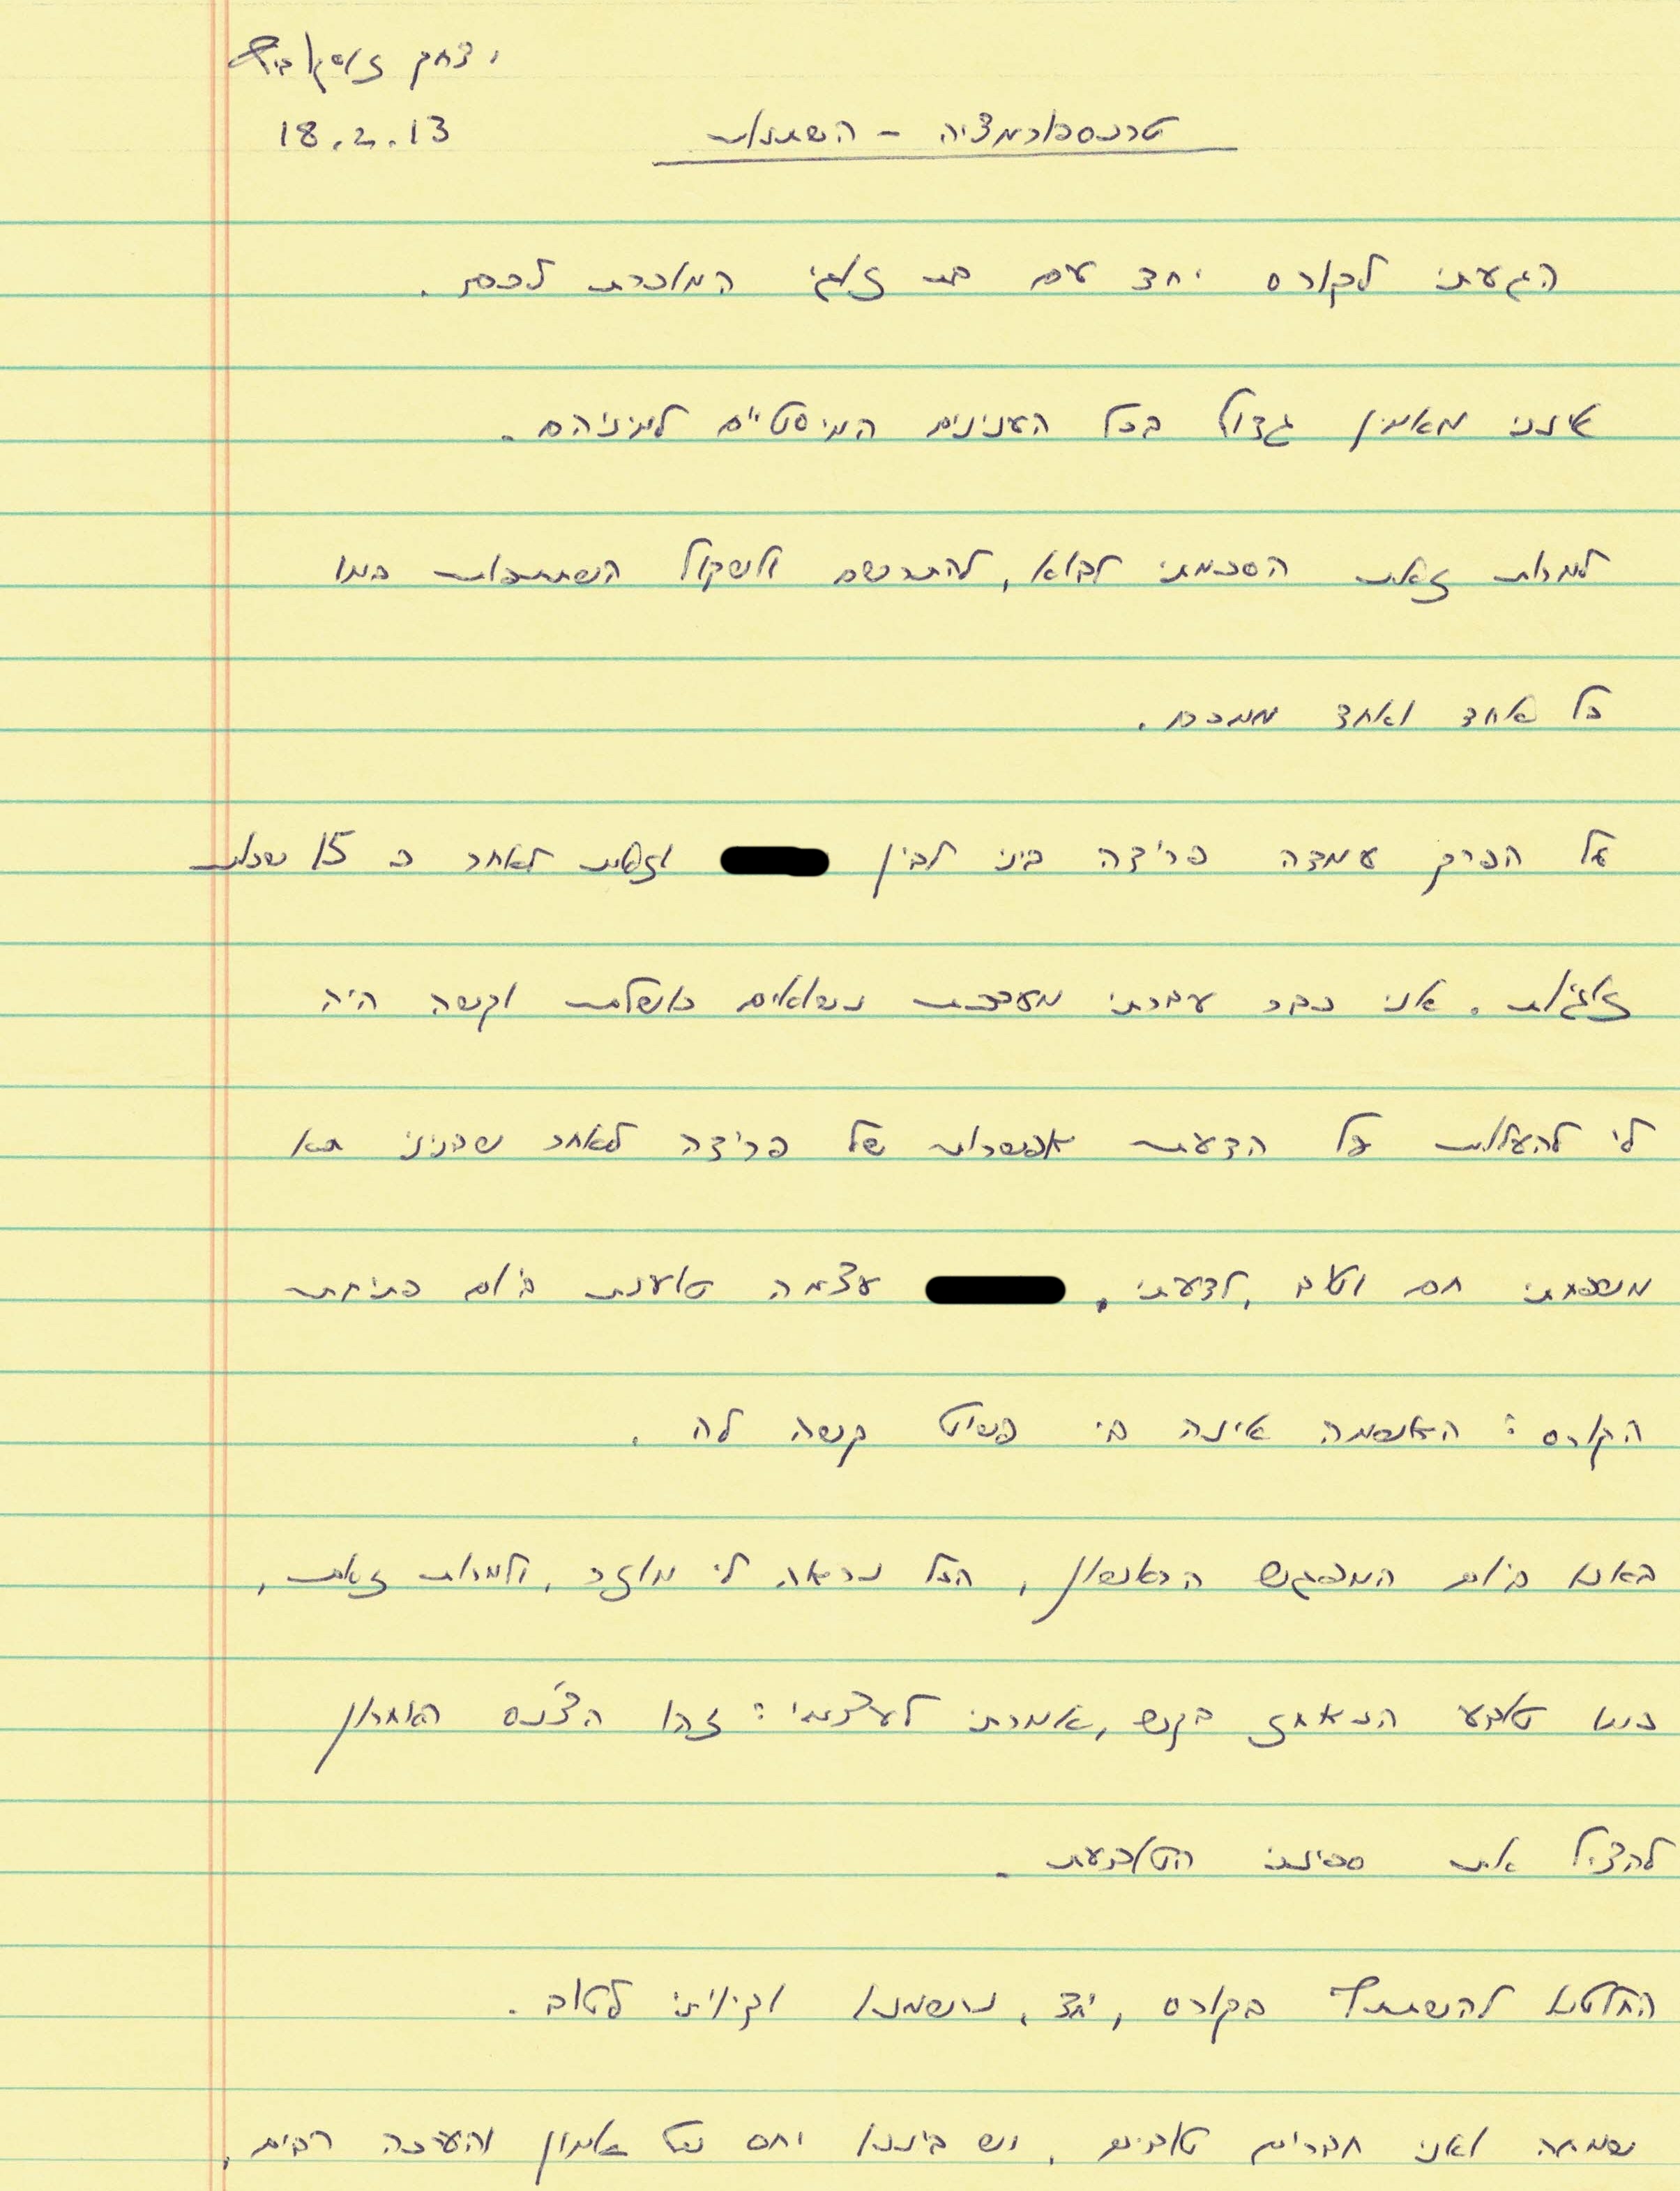 יצחק
18.2.13
טרנספורמציה - השתנות
הגעתי לקורס יחד עם בת זוגי המוכרת לכם.
אינני מאמין גדול בכל הענינים המיסטיים למיניהם.
למרות זאת הסכמתי לבוא, להתרשם ולשקול השתתפות כמו
כל אחד ואחד מכם.
על הפרק עמדה פרידה ביני לבין וזאת לאחר כ 15 שנות
זוגיות. אני כבר עברתי מערכת נשואים כושלת וקשה היה
לי להעלות על הדעת אפשרות של פרידה לאחר שבניני תא
משפחתי חם וטוב, לדעתי. עצמה טוענת ביום פתיחת
הקורס: האשמה אינה בי פשוט קשה לה.
באנו ביום המפגש הראשון, הכל נראה לי מוזר, ולמרות זאת,
כמו טובע הנאחז בקש, אמרתי לעצמי: זהו הצ'נס האחרון
להציל את ספינתי הטובעת.
החלטנו להשתתף בקורס, יחד, נרשמנו וקיויתי לטוב.
שמחה ואני חברים טובים, ויש ביננו יחס של אמון והערכה רבים,